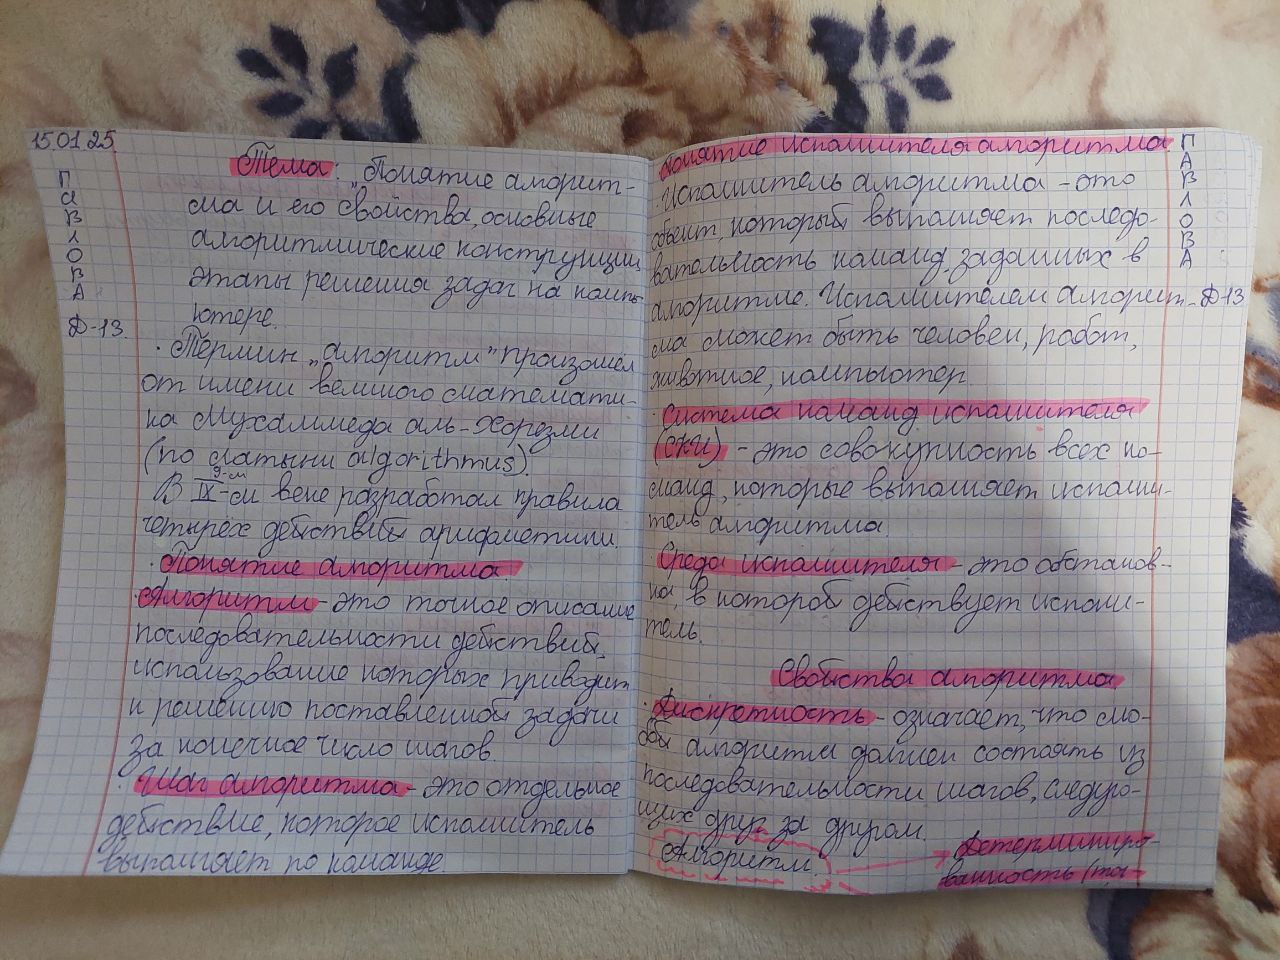 15.01.25.
ПаВЛОВА
Д-13.
Тема: "Понятие алгорит-
ма и его свойства, основные
алгоритмические конструкции,
этапы решения задач на компь
ютере.
· Термин "алгоритм" произошел
от имени великого математи-
ка Мухаммеда аль-Хорезми
(по латыни algorithmus).
В IX-ом веке разработал правила
четырёх действий арифметики.
· Понятие алгоритма.
· Алгоритм - это точное описание
последовательности действий,
использование которых приводит
к решению поставленной задачи
за конечное число шагов.
· Шаг алгоритма - это отдельное
действие, которое исполнитель
выполняет по команде.
Понятие исполнителя алгоритма.
ПАВЛОВА
Д-13
Исполнитель алгоритма - это
объект, который выполняет последо-
вательность команд, заданных в
алгоритме. Исполнителем алгорит-
ма может быть человек, робот,
животное, компьютер
· Система команд исполнителя
(СКИ) - это совокупность всех ко-
манд, которые выполняет исполни-
тель алгоритма.
· Среда исполнителя - это обстанов-
ка, в которой действует исполни-
тель.
Свойства алгоритма
· Дискретность - означает, что лю-
бой алгоритм должен состоять из
последовательности шагов, следую-
щих друг за другом.
Алгоритм.
Детерминиро-
ванность (точ-